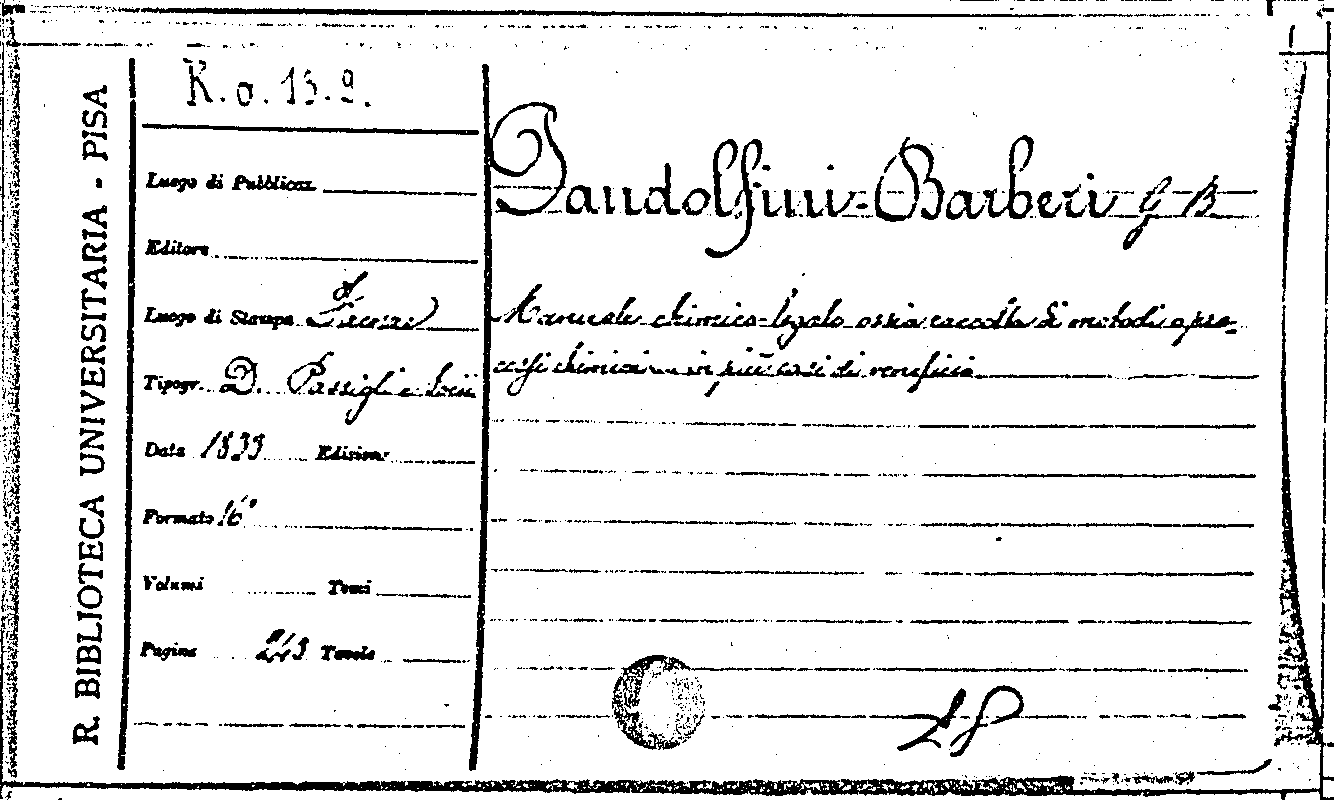 R. BIBLIOTECA UNIVERSITARIA - PISA
K. o. 13. 9.
Luogo di Pubblicaz.
Editore
Luogo di Stampa Firenze
Tipogr. D. Passigli e Socii
Data 1833 Edizione
Formato 16°
Volumi Tomi
Pagine 243 Tavole
Pandolfini-Barberi G B
Manuale chimico-legale ossia raccolta di metodi e pro-
cessi chimici in più casi di venefizio